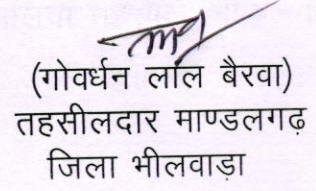 (गोवर्धन लाल बैरवा)
तहसीलदार माण्डलगढ़
जिला भीलवाड़ा